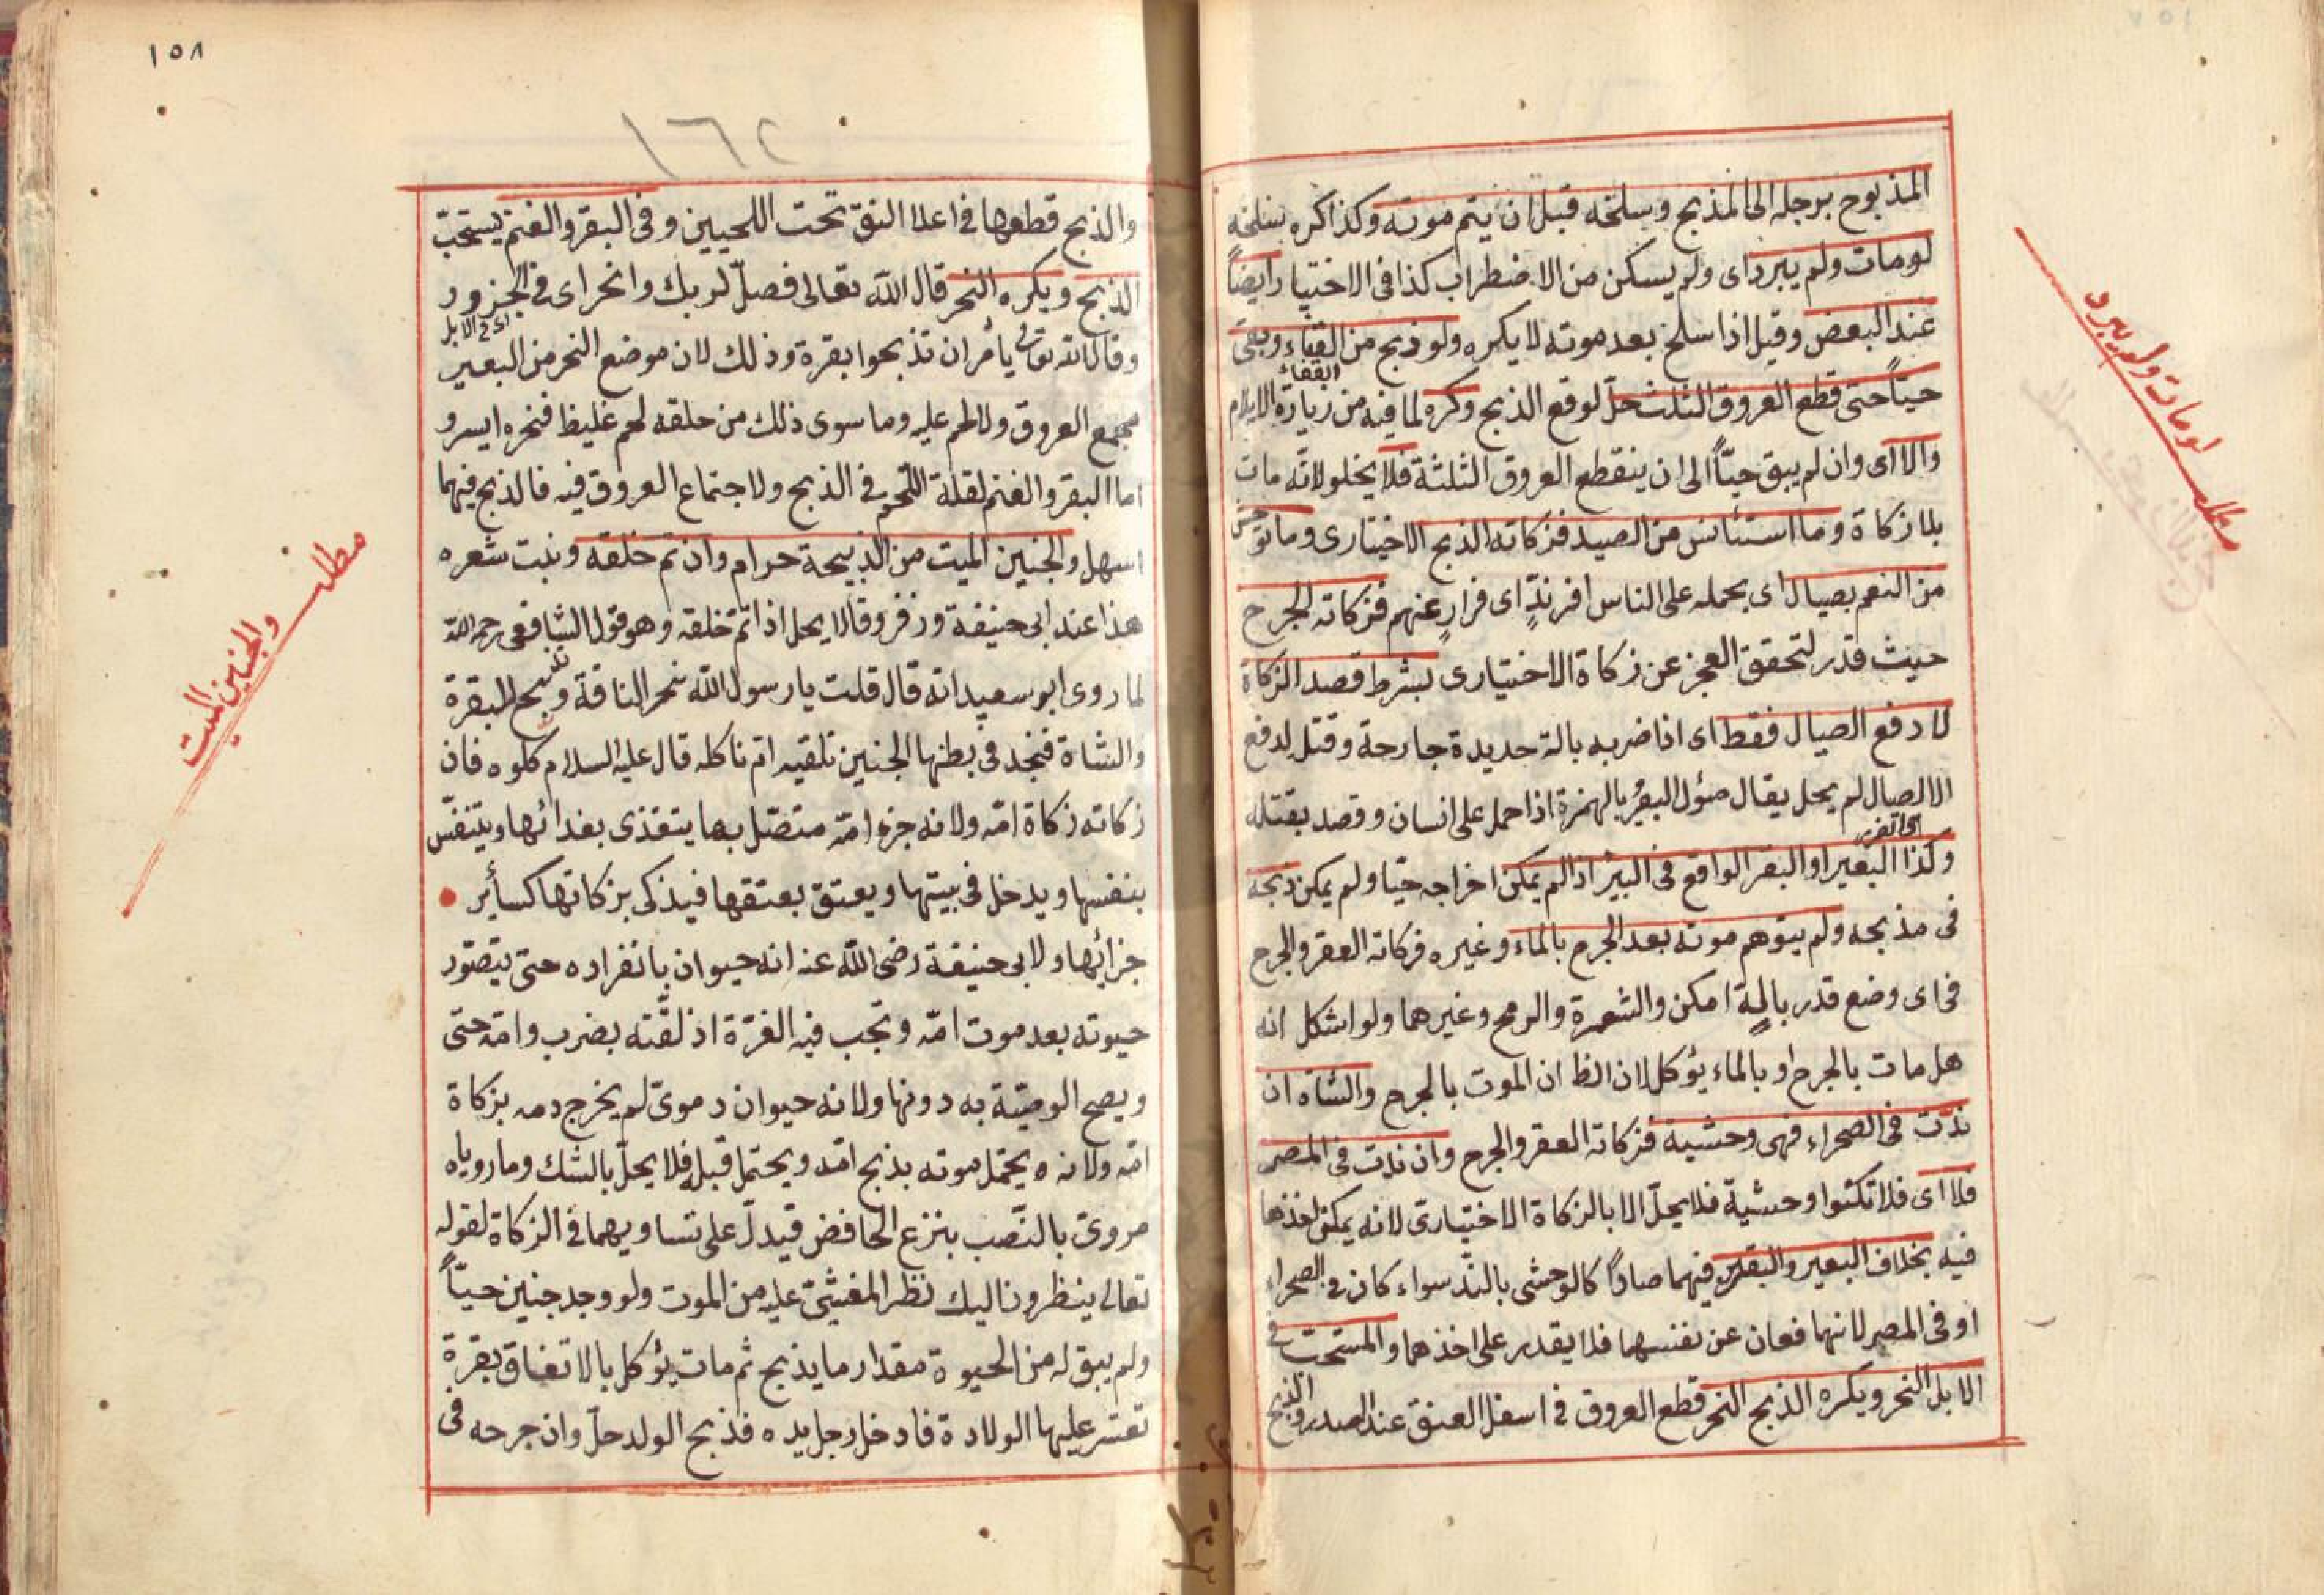 المذبوح برجله الى المذبح وسلخه قبل ان يتم موته وكذا كره سلخه
لو مات ولم يبرد اى ولم يسكن من الاضطراب كذا فى الاختيار وايضاً
عند البعض وقيل اذا سلخ بعد موته لا يكره ولو ذبح من القفاء وبقى
القفاء
حيّاً حتى قطع العروق الثلث حلّ لوقع الذبح وكره لما فيه من زيادة الايلام
والا اى وان لم يبق حيّاً الى ان ينقطع العروق الثلثة فلا يخلو لانّه مات
بلا زكاة وما استئانس من الصيد فزكاته الذبح الاختيارى وما توحش
من النعم بصيال اى بحمله على الناس افر ندٍّ اى فرارٍ عنهم فزكاته الجرح
حيث قدر لتحقق العجز عن زكاة الاختيارى بشرط قصد الزكاة
لا دفع الصيال فقط اى اذا ضربه بالة حديدة جارحة وقتل لدفع
الا الصيال لم يحل يقال صئول البعيرُ بالهمزة اذا حمل على انسان وقصد بقتله
وكذا البعير او البقر الواقع فى البير اذا لم يمكن اخراجه حيّا ولم يمكن ذبحه
فى مذبحه ولم يتوهم موته بعد الجرح بالماء وغيره فزكاته العقر والجرح
فى اى وضع قدر بالة امكن والشعرة والرمح وغيرهما ولو اشكل انه
هل مات بالجرح او بالماء يؤكل لان الظ ان الموت بالجرح والشاة ان
ندّت فى الصحراء فهى وحشية فزكاته العقر والجرح وان ندت فى المصر
فلا اى فلا تكئوا وحشية فلا يحلّ الا بالزكاة الاختيارىّ لانه يمكن اخذها
فيه بخلاف البعير والبقر فيهما صاداً كالوحشى بالندّ سواء كان فى الصحراء
او فى المصر لانهما فعان عن نفسهما فلا يقدر على اخذهما والمستحب فى
الابل النحر ويكره الذبح النحر قطع العروق فى اسفل العنق عند الصدر والذبح
مطلب لو مات ولم يبرد
١٥٨
١٦٢
والذبح قطعها فى اعلا النق تحت اللحيين وفى البقر والغنم يستحبّ
الذبح ويكره النحر قال الله تعالى فصلّ لربك وانحر اى فى الجزور
اى فى الابل
وقال الله تعالى يأمر ان تذبحوا بقرة وذلك لان موضع النحر من البعير
مجمع العروق ولا لحم عليه وما سوى ذلك من حلقه لحم غليظ فنحره ايسر و
اما البقر والغنم لقلة اللحوم فى الذبح ولاجتماع العروق فيه فالذبح فيهما
اسهل والجنين الميت من الذبيحة حرام وان تم خلقه ونبت شعره
هذا عند ابى حنيفة وزفر وقالا يحل اذا تمّ خلقه وهو قول الشافعى رحمه الله
لما روى ابو سعيد انه قال قلت يا رسول الله ننحر الناقة ونذبح البقرة
والشاة فنجد فى بطنها الجنين نلقيه ام ناكله قال عليه السلام كلوه فان
زكاته زكاة امّه ولانه جزء امّه متصّل بها يتغذى بغدائها ويتنفّس
بنفسها ويدخل فى بيتها ويعتق بعتقها فيذكى بزكاتها كسأير
جزائها ولابى حنيفة رضى الله عنه انه حيوان بانفراده حتى يتصّور
حيوته بعد موت امّه وتجب فيه الغرّة اذ لقّته بضرب وامّه حتى
ويصح الوصّية به دونها ولانه حيوان دموىّ لم يخرج دمه بزكاة
امّه ولانه يحتمل موته بذبح امّه ويحتمل قبله فلا يحلّ بالشك وما روياه
مروىّ بالنصّب بنزع الخافض فيدلّ على تساويهما فى الزكاة لقوله
تعالى ينظرون اليك نظر المغشىّ عليه من الموت ولو وجد جنين حيّاً
ولم يبق له من الحيوة مقدار ما يذبح ثم مات يؤكل بالاتفاق بقرة
تعسّر عليها الولادة فادخل رجل يده فذبح الولد حلّ وان جرحه فى
مطلب والجنين الميت